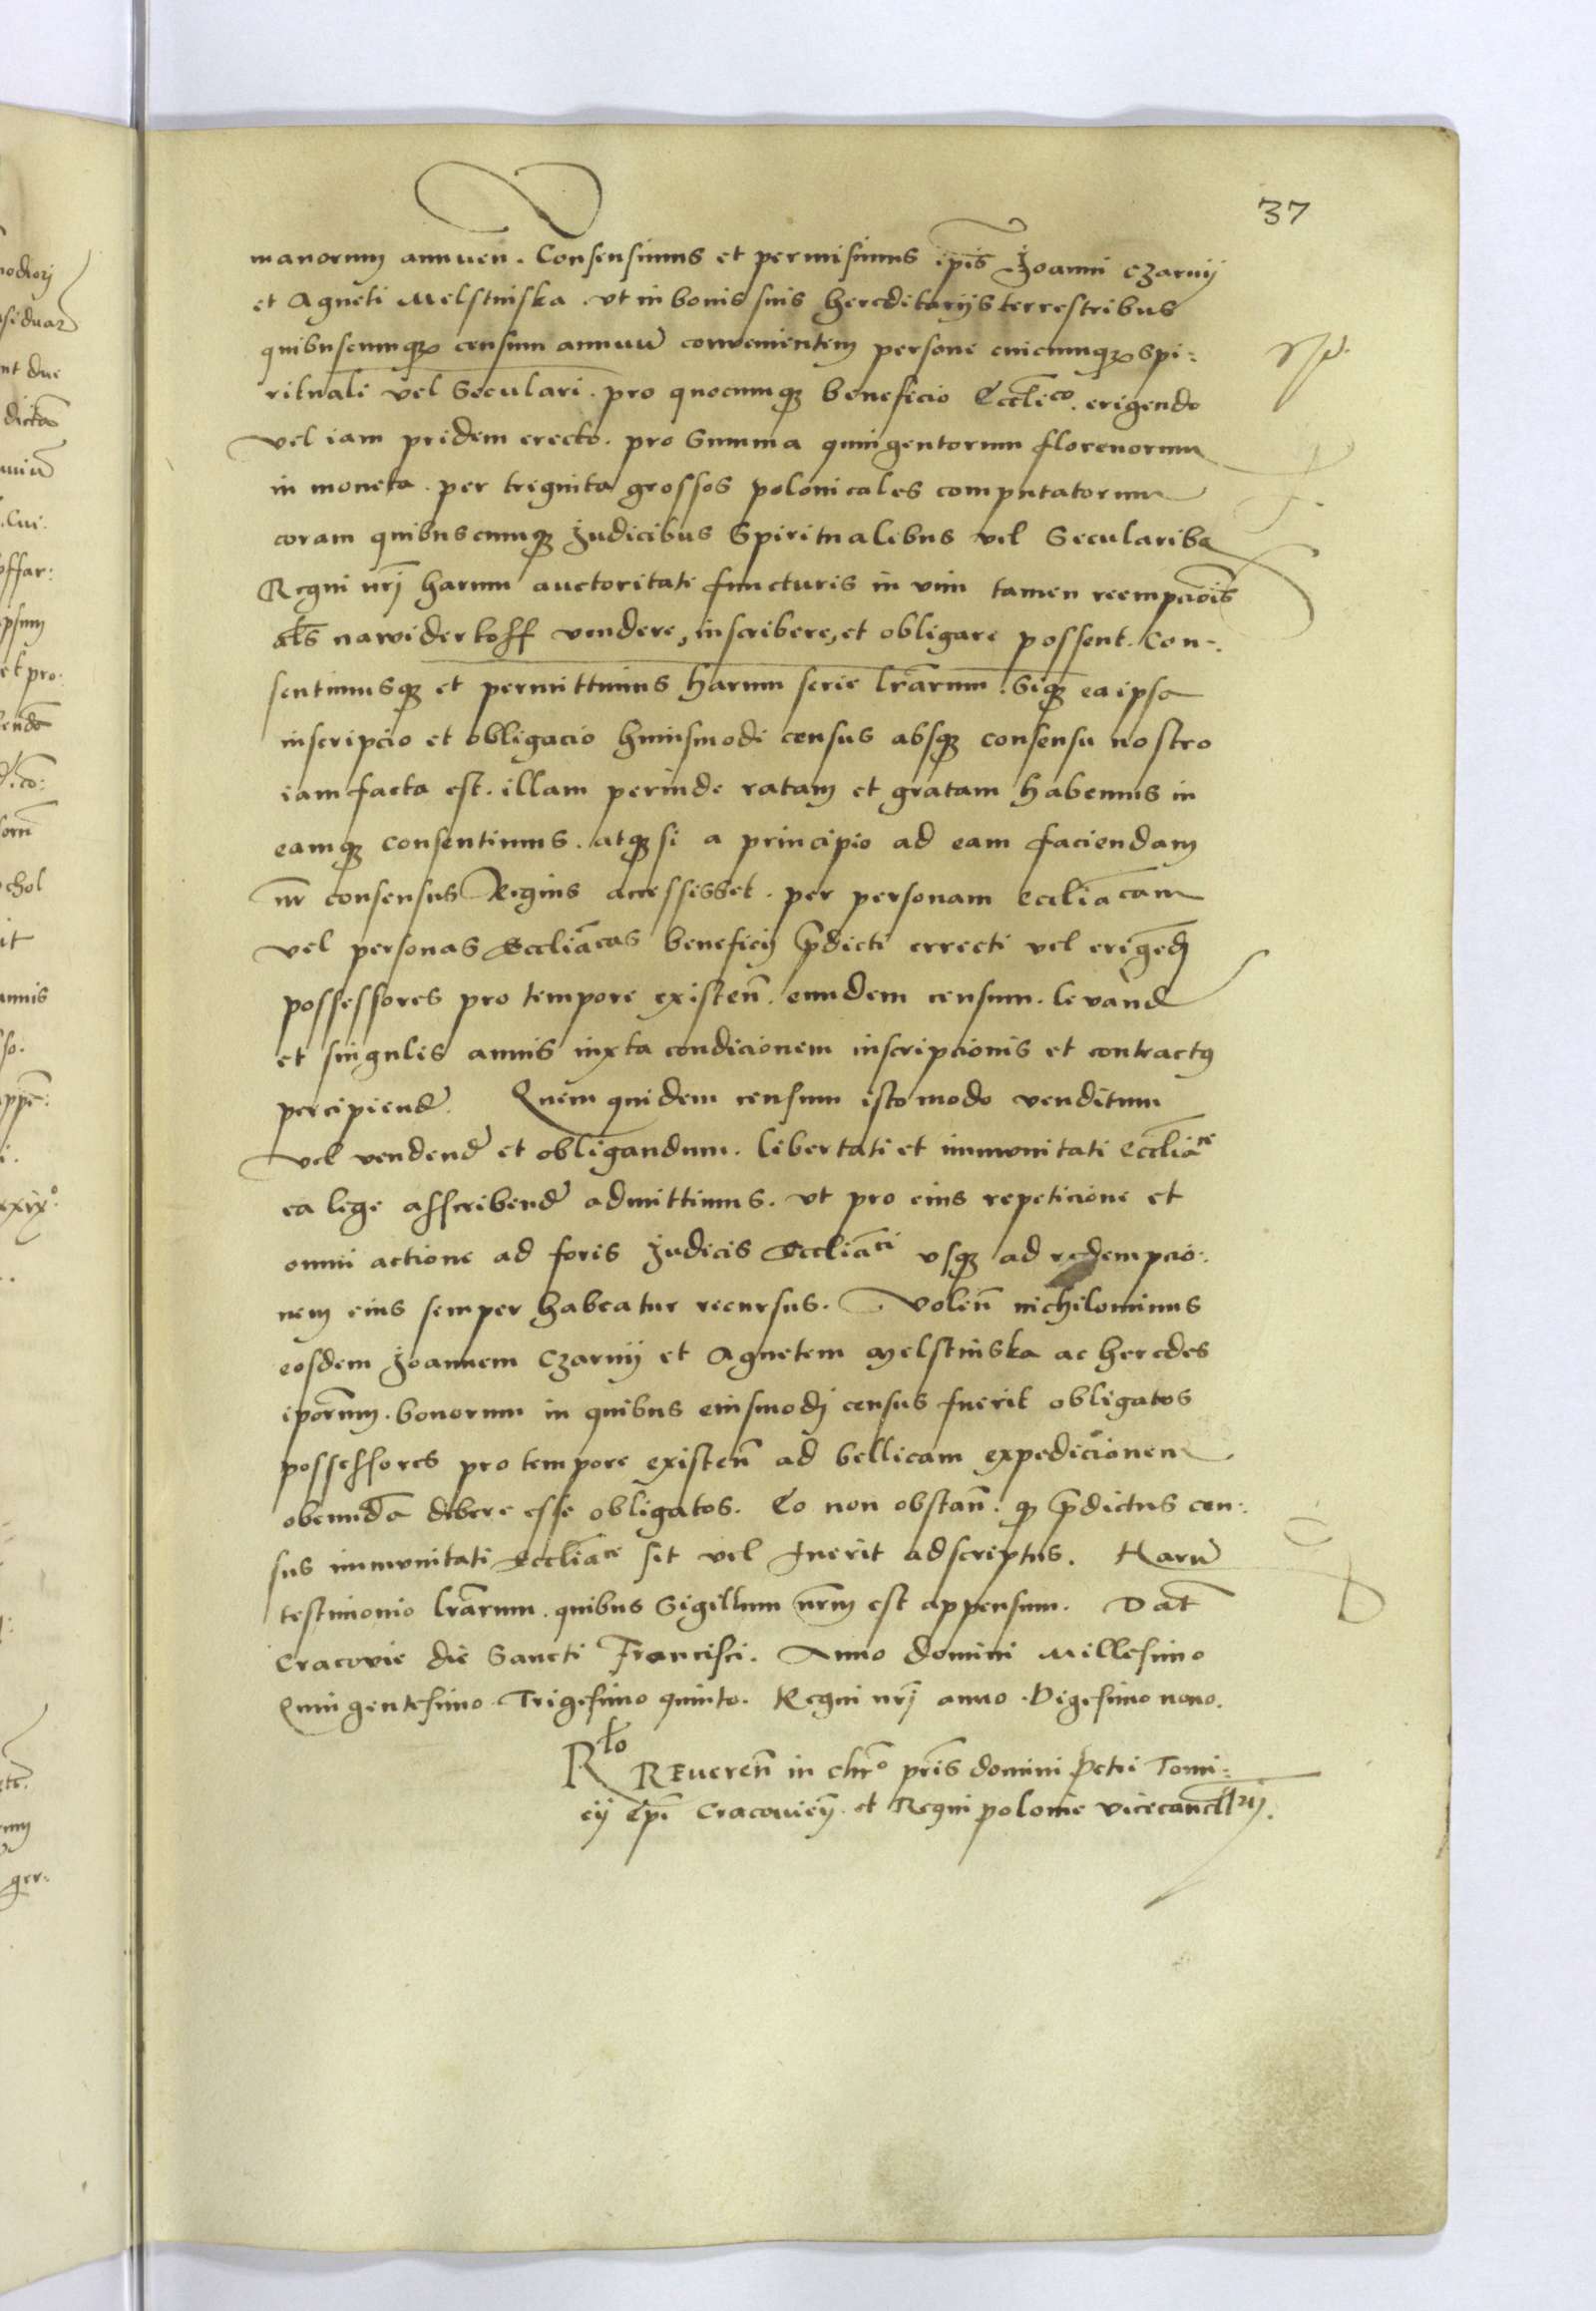 37
manorum annuen̄. Consensimus et permisimus ip̄is Joanni Czarnij
et Agneti Melstinska. vt in bonis suis hereditarijs terrestribus
quibuscumqꝫ censum annuū convenientem persone cuicumqꝫ Spi:
rituali vel Seculari. pro quocumqꝫ beneficio Eccl̄ico. erigendo
vel iam pridem erecto. pro Summa quingentorum florenorum
in moneta. per treginta grossos polonicales computatorum
coram quibuscumqꝫ Judicibus Spiritualibus vel Secularibꝫ
Regni nr̄j harum auctoritati functuris in vim tamen reempcio̅is
al̄s nawiderkoff vendere, inscribere, et obligare possent. Con-
sentimusqꝫ et permittimus harum serie l̄rarum. Siqꝫ ea ipsa
inscripcio et obligacio huiusmodi census absqꝫ consensu nostro
iam facta est. illam perinde ratam et gratam habemus in
eamqꝫ consentimus. atqꝫ si a principio ad eam faciendam
nr̄ consensus Regius accessisset. per personam eccliācam
vel personas Eccliācas beneficij p̄dicti errecti vel erigēdj
possessores pro tempore existen̄. eundem censum. levand̄
et singulis annis iuxta condicionem inscripcionis et contractꝰ
percipiend̄. Quem quidem censum isto modo venditum
vel vendend̄ et obligandum. libertati et immunitati Eccliāce
ea lege asscribend̄ admittimus. vt pro eius repeticione et
omni actione ad foris Judicis Eccliāci vsqꝫ ad redempcio:
nem eius semper habeatur recursus. Volen̄ nichilominus
eosdem Joannem Czarnij et Agnetem Melstinska ac heredes
ipo̅rum. bonorum in quibus eiusmodj census fuerit obligatus
possessores pro tempore existen̄ ad bellicam expedicionem
obeundā debere esse obligatos. Eo non obstan̄. qꝫ p̄dictus cen:
sus immunitati Eccliāce sit vel fuerit adscriptus. Harū
testimonio l̄rarum. quibus Sigillum nr̄m est appensum. Dat̄
Cracovie die Sancti Francisci. Anno domini Millesimo
Quingentesimo Trigesimo quinto. Regni nr̄j anno. Vigesimo nono.
Rło Reueren̄ in chr̄o pr̄is domini Petri Tomi:
cij Ep̄i Cracouien̄. et Regni polonie vicecancłłrij.